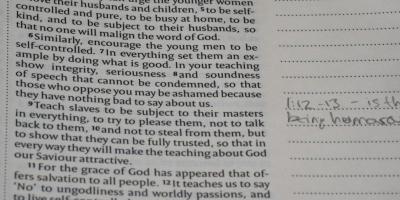 love their husbands and children, 5to be self-
controlled and pure, to be busy at home, to be
kind, and to be subject to their husbands, so
that no one will malign the word of God.
6Similarly, encourage the young men to be
self-controlled. 7In everything set them an ex-
ample by doing what is good. In your teaching
show integrity, seriousness 8and soundness
of speech that cannot be condemned, so that
those who oppose you may be ashamed because
they have nothing bad to say about us.
9Teach slaves to be subject to their masters
in everything, to try to please them, not to talk
back to them, 10and not to steal from them, but
to show that they can be fully trusted, so that in
every way they will make the teaching about God
our Saviour attractive.
11For the grace of God has appeared that of-
fers salvation to all people. 12It teaches us to say
'No' to ungodliness and worldly passions, and
1:12-13 - is th
being